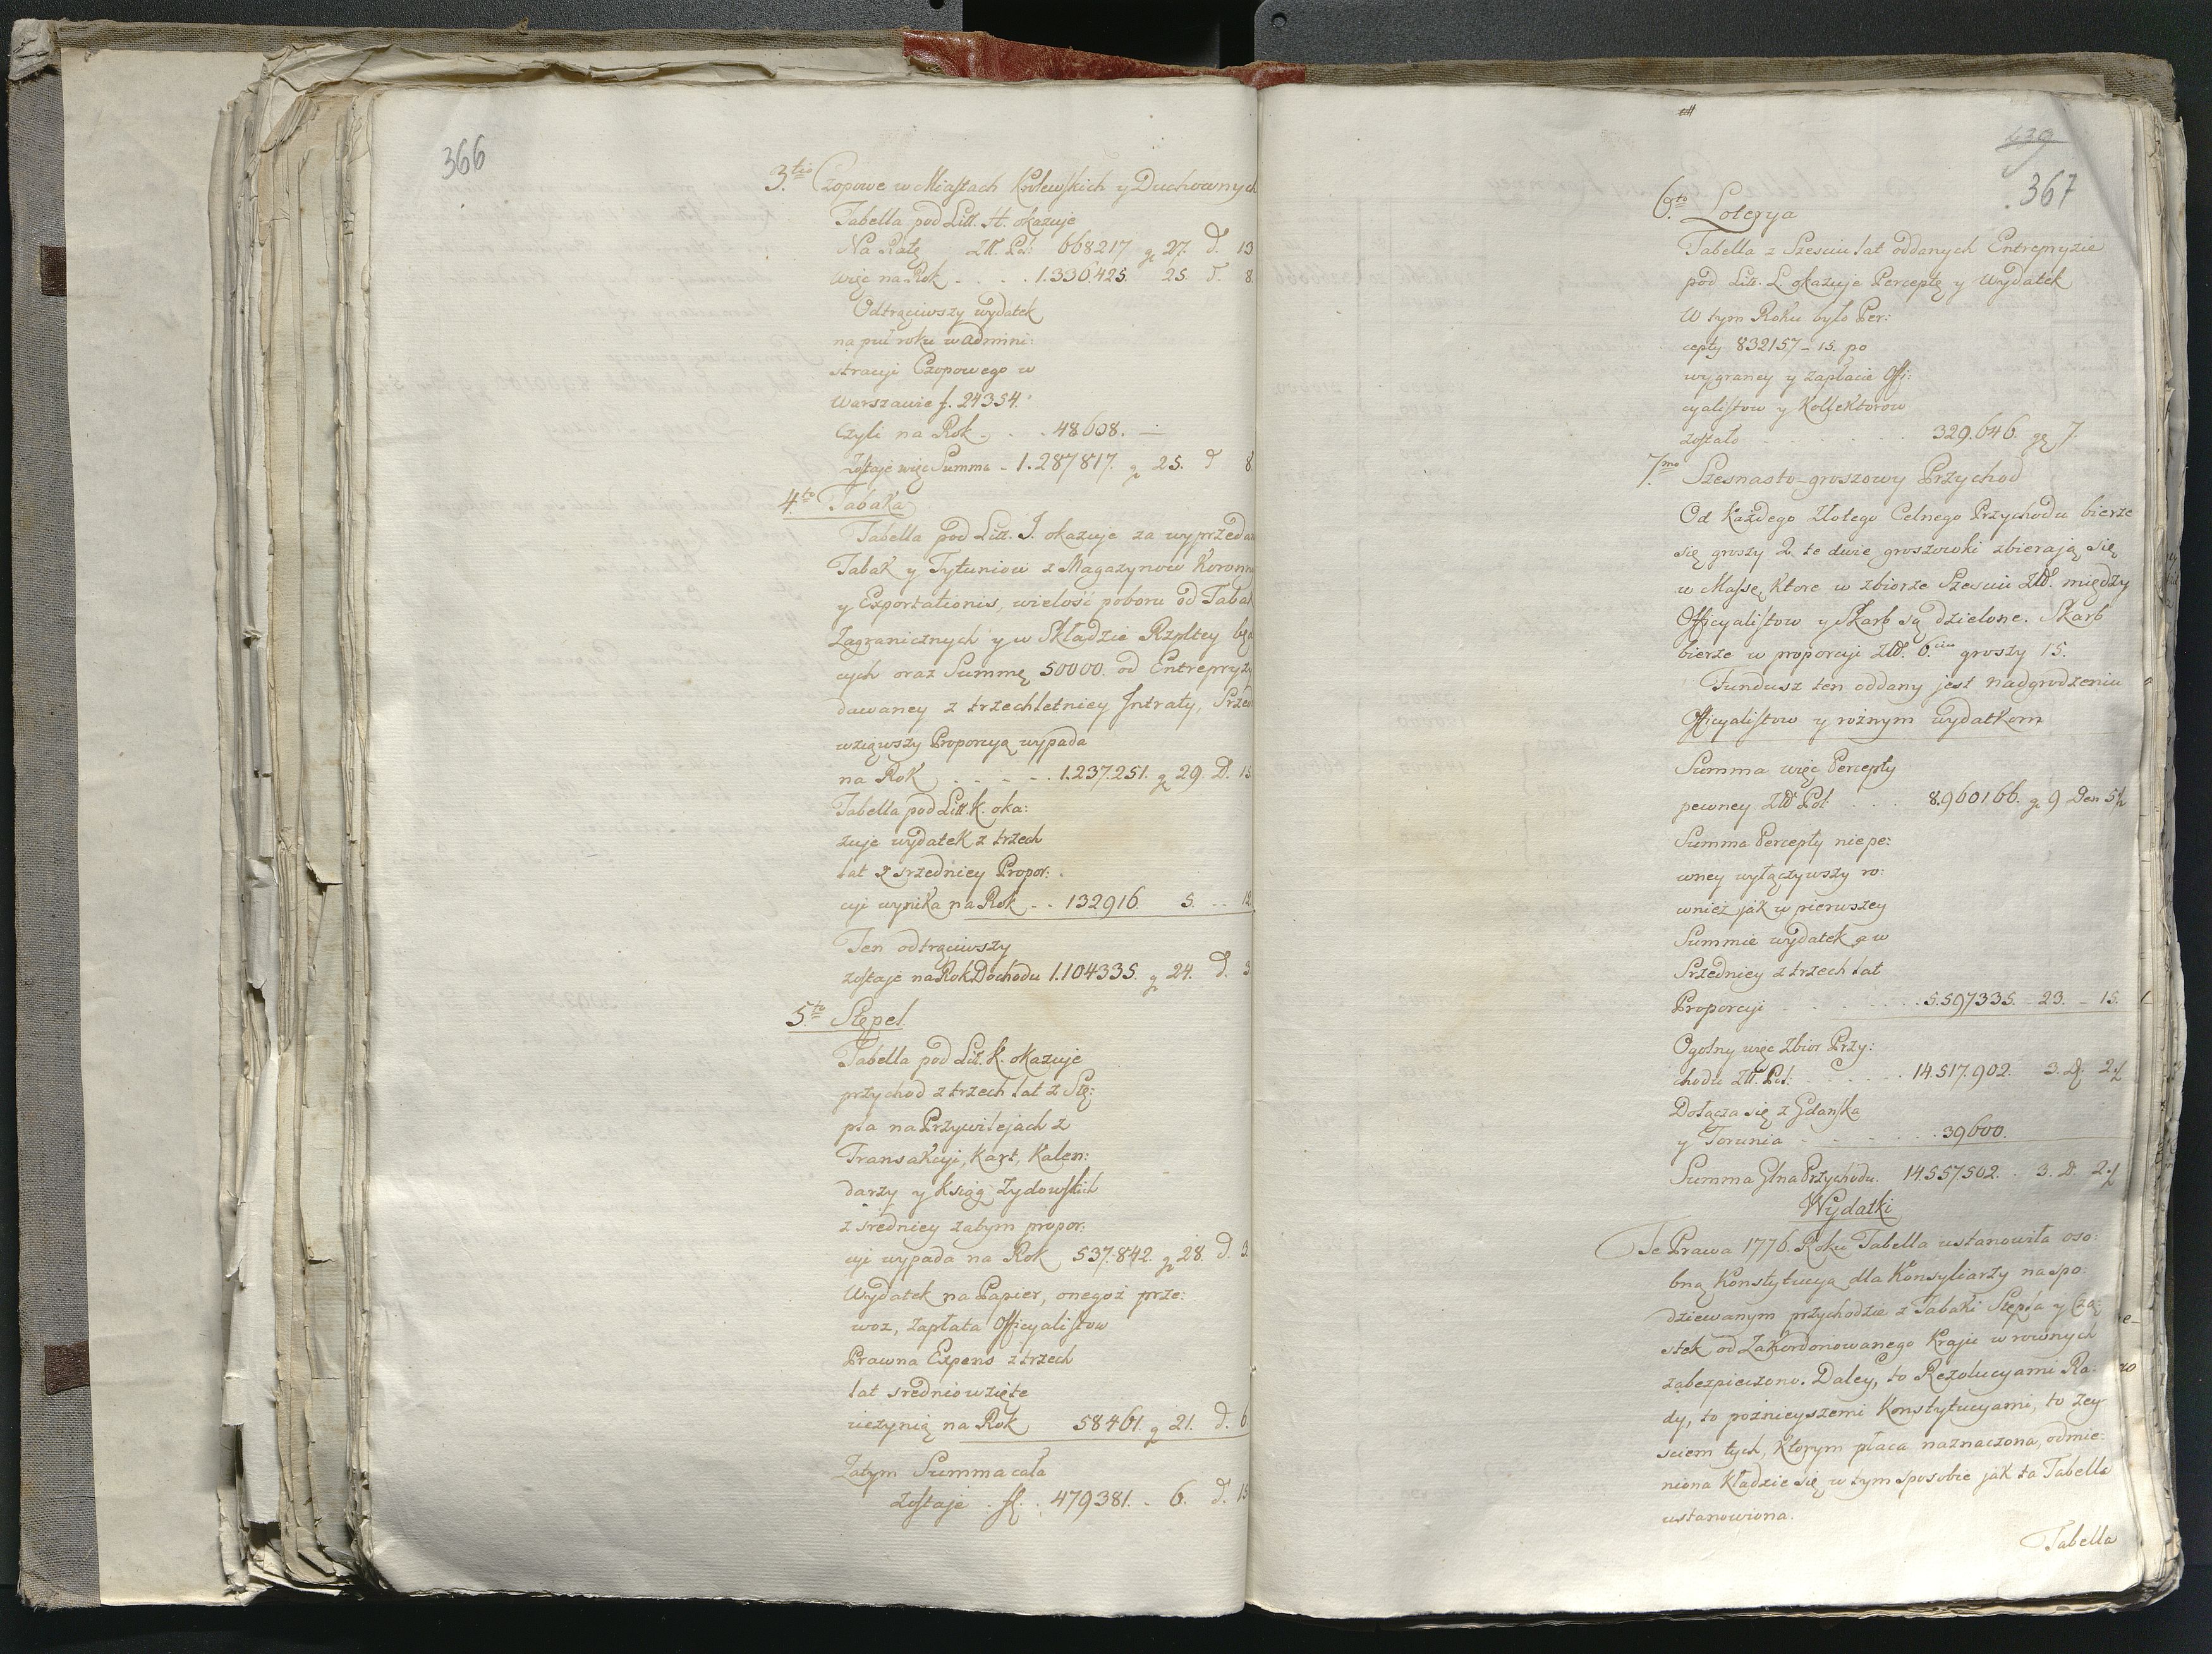 366
3.tio Czopowe w Miastach Krolewskich y Duchownych
Tabella pod Litt. H. okazuje
Na Ratę Złł. Pol: 668217 g 27. d. 13
więc na Rok . . . 1.336.425. 25. d. 8.
Odtrąciwszy wydatek
na puł roku w admini:
stracyi Czopowego w
Warszawie f. 24354.
Czyli na Rok . . . 48608. —
Zostaje więc Summa . 1.287817. g 25. d 8.
4.to Tabaka
Tabella pod Litt. J. okazuje za wyprzedan
Tabak y Tytuniow z Magazynow Koronny
y Exportationis, wielość poboru od Tabak
Zagranicznych y w Składzie Rzpltey będą
cych oraz Summę 50000. od Entrepryzy
dawaney z trzechletniey Intraty, Srzed
wziąwszy Proporcyą wypada
na Rok . . . . 1.237.251. g 29. D. 15
Tabella pod Litt. K. oka:
zuje wydatek z trzech
lat z srzedniey Propor:
cyi wynika na Rok . . 132916 5. . . 12
Ten odtrąciwszy
zostaje na Rok Dochodu 1.104335. g 24. d. 3
5.to Stępel
Tabella pod Lit. K. okazuje
przychod z trzech lat z Stę:
pla na Przywilejach z
Transakcyi, Kart, Kalen:
darzy y Ksiąg Zydowskich
z sredniey zatym propor:
cyi wypada na Rok 537.842. g 28. d. 3.
Wydatek na Papier, onegoż prze:
woz, zapłata Officyalistow
Prawna Expens z trzech
lat srednio wzięte
uczynią na Rok 58461. g 21. d. 6.
Zatym Summa cała
zostaje . fl. . 479381. . 6. d. 15
439
367
6.to Loterya
Tabella z Szesciu lat oddanych Entrepryzie
pod Litt. L. okazuje Perceptę y Wydatek
W tym Roku było Per:
cepty 832157 – 15. po
wygraney y zapłacie Offi:
cyalistow y Kollektorow
zostało . . . . . 329.646. gr 7.
7.mo Szesnasto-groszowy Przychod
Od Każdego Złotego Celnego Przychodu bierze
się groszy 2. te dwie groszowki zbierają się
w Massę, Ktore w zbiorze Szesciu Złł. między
Officyalistow y Skarb są dzielone. Skarb
bierze w proporcyi Złł. 6.ciu groszy 15.
Fundusz ten oddany jest nadgrodzeniu
Officyalistow y rożnym wydatkom
Summa więc Percepty
pewney Złł Pol: . . . 8.960166. g 9 Den
Summa Percepty niepe:
wney wyłączywszy ro:
wnież jak w pierwszey
Summie wydatek a w
Srzedniey z trzech lat
Proporcyi . . . . . 5.597335. . 23. . 15.
Ogolny więc zbior Przy:
chodu Złł. Pol: . . . . . 14.517.902. 3. d.
Dołącza się z Gdańska
y Torunia . . . . 39600.
Summa Glna Przychodu. 14.557.502. . 3. D.
Wydatki
Te Prawa 1776. Roku Tabella ustanowiła oso:
bną Konstytucyą dla Konsyliarzy na spo:
dziewanym przychodzie z Tabaki Stępla y Czą:
stek od Zakordonowanego Kraju w rownych
zabezpieczono. Daley, to Rezolucyami Ra:
dy, to poznieyszemi Konstytucyami, to zey:
sciem tych, Ktorym płaca naznaczona, odmie:
niona Kładzie się w tym sposobie jak ta Tabella
ustanowiona.
Tabella